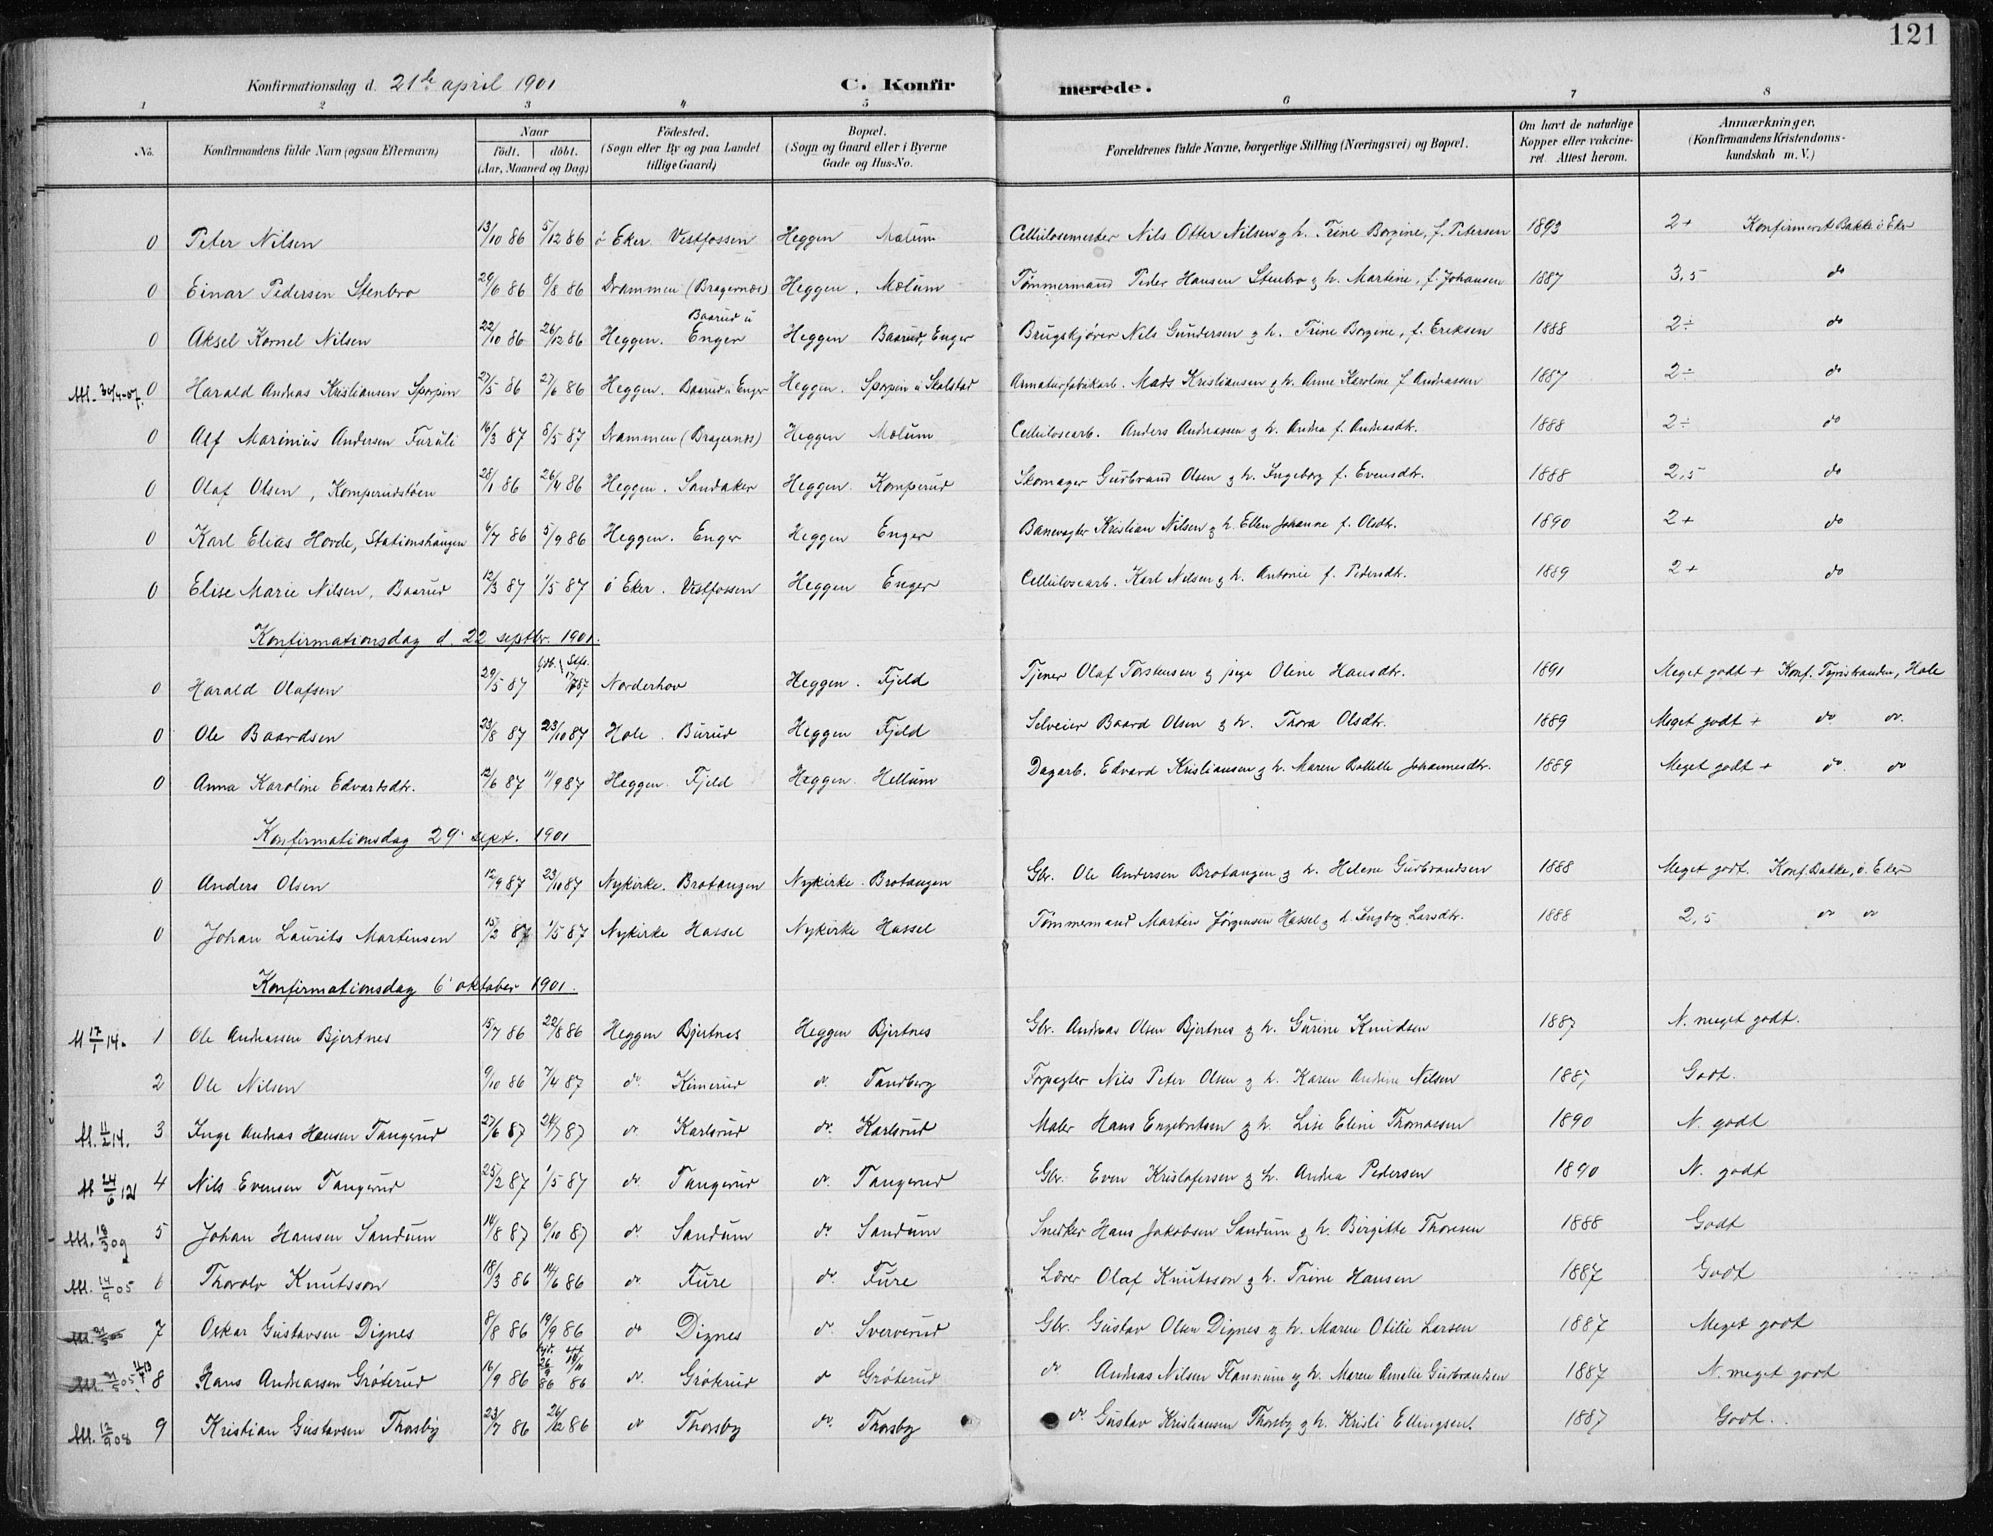 121
Konfirmationsdag d. 21de april 1901 C. Konfirmerede.
1 2 3 4 5 6 7 8
No. Konfirmandens fulde Navn (ogsaa Efternavn) Naar födt. döbt. (Aar, Maaned og Dag) Födested. (Sogn eller By og paa Landet tillige Gaard) Bopæl. (Sogn og Gaard eller i Byerne Gade og Hus-No. Forældrenes fulde Navne, borgerlige Stilling (Næringsvei) og Bopæl. Om havt de naturlige Kopper eller vakcineret Attest herom. Anmærkninger. (Konfirmandens Kristendomskundskab m. V.)
0 Peter Nilsen 13/10 86 5/12 86 ö Eker Vestfossen Heggen Mælum Cellulosemester Nils Otter Nilsen g h. Trine Borgine, f. Petersen 1893 2+ Konfirmeret Bakke ö Eker
0 Einar Pedersen Stenbro 29/6 86 8/8 86 Drammen (Bragernæs) Heggen. Mælum Tømmermand Peder Hansen Stenbro g h. Martine, f. Johansen 1887 3,5 do
0 Aksel Kornel Nilsen 22/10 86 26/12 86 Heggen. Baarud u Enger Heggen Baarud, Enger Brugskjører Nils Gundersen g h. Trine Borgine, f. Eriksen 1888 2÷ do
0 Harald Andreas Kristiansen Sporpin 27/5 86 27/6 86 Heggen. Baarud u Enger Heggen. Sporpin u Skalstad Armaturfabrikarb. Mads Kristiansen g h. Anne Karoline f. Andreassen 1887 2÷ do
0 Alf Marinius Andersen Furuli 16/3 87 8/5 87 Drammen (Bragernæs) Heggen Mælum Cellulosearb. Anders Andreassen g h. Andrea f. Andreasdtr. 1888 2÷ do
0 Olaf Olsen, Komperudstøen 28/1 86 26/4 86 Heggen. Sandaker Heggen. Komperud Skomager Gudbrand Olsen g h. Ingeborg f. Evensdtr. 1888 2,5 do
0 Karl Elias Hovde, Stationshaugen 6/7 86 5/9 86 Heggen. Enger Heggen Enger Banevogter Kristian Nilsen g h. Ellen Johanne f. Olsdtr. 1890 2+ do
0 Elise Marie Nilsen, Baarud 12/3 87 1/5 87 ö Eker. Vestfossen Heggen Enger Cellulosearb. Karl Nilsen g h. Antonie f. Pedersdtr. 1889 2+ do
Konfirmationsdag d. 22 septbr. 1901.
0 Harald Olafsen 29/5 87 Norderhov Heggen. Fjeld Tjener Olaf Torstensen g pige Oline Hansdtr. 1891 Meget godt + Konf. Tyristranden, Hole
0 Ole Baardsen 23/8 87 23/10 87 Hole. Burud Heggen Fjeld Selveier Baard Olsen g h. Thora Olsdtr. 1889 Meget godt + do do.
0 Anna Karoline Edvartsdtr. 12/6 87 11/9 87 Heggen. Fjeld Heggen. Hellum Dagarb. Edvard Kristiansen g h. Maren Botille Johannesdtr. 1889 Meget godt + do. do
Konfirmationsdag 29' sept. 1901
0 Anders Olsen 12/9 87 23/10 87 Nykirke. Brotangen Nykirke. Brotangen Gbr. Ole Andersen Brotangen g h. Helene Gudbrandsen 1888 Meget godt. Konf. Bakke, ö. Eker
0 Johan Laurits Martinsen 15/2 87 1/5 87 Nykirke Hassel Nykirke Hassel Tømmermand Martin Jørgensen Hassel g h. Ingbrg Larsdtr. 1888 2,5 do do
Konfirmationsdag 6' oktober 1901.
M 17/1 14. 1 Ole Andreassen Bjertnes 15/7 86 22/8 86 Heggen Bjertnes Heggen Bjertnes Gbr. Andreas Olsen Bjertnes g h. Gurine Knudsen 1887 N. meget godt.
2 Ole Nilsen 9/10 86 7/4 87 do Kimerud do. Tandberg Forpagter Nils Peter Olsen g h. Karen Andrine Nilsen 1887 Godt.
M. 11/2 14. 3 Inge Andreas Hansen Tangerud 27/6 87 24/7 87 do Karlsrud do. Karlsrud Maler Hans Engebretsen g h. Lise Eline Thomassen 1890 N. godt
M 24/6 121 4 Nils Evensen Tangerud 25/2 87 1/5 87 do Tangerud do. Tangerud Gbr. Even Kristofersen g h. Andrea Pedersen 1890 N. godt
M. 18/3 09 5 Johan Hansen Sandum 14/8 87 6/10 87 do. Sandum do. Sandum Snedker Hans Jakobsen Sandum g h. Birgitte Thoresen 1888 Godt
M. 14/9 05 6 Thorolv Knutsson 18/3 86 14/6 86 do Fure do. Fure Lærer Olaf Knutsson g h. Trine Hansen 1887 Godt
7 Oskar Gustavsen Dignes 8/8 86 19/9 86 do Dignes do. Sververud Gbr. Gustav Olsen Dignes g h. Maren Otilie Larsen 1887 Meget godt
8 Hans Andreassen Gröterud 16/9 86 do. Gröterud do Gröterud do Andreas Nilsen Flannum g h. Maren Amalie Gudbrandsen 1887 N. meget godt
M. 12/9 08 9 Kristian Gustavsen Thorsby 23/7 86 26/12 86 do Thorsby do. Thorsby do Gustav Kristiansen Thorsby g h. Kristi Ellingsen. 1887 Godt.